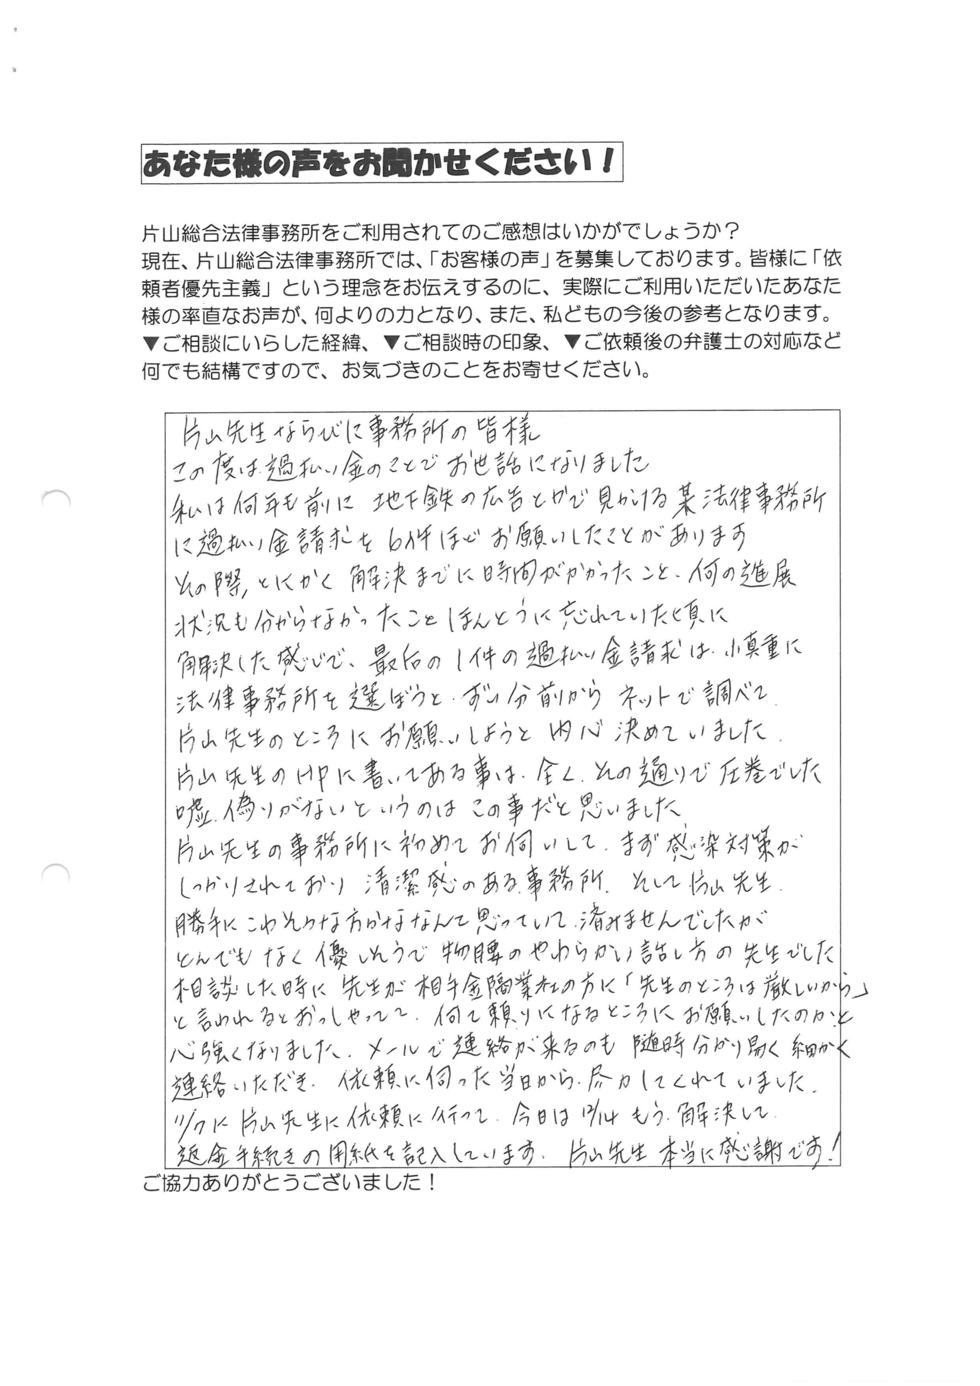 あなた様の声をお聞かせください！
片山総合法律事務所をご利用されてのご感想はいかがでしょうか？
現在、片山総合法律事務所では、「お客様の声」を募集しております。皆様に「依
頼者優先主義」という理念をお伝えするのに、実際にご利用いただいたあなた
様の率直なお声が、何よりの力となり、また、私どもの今後の参考となります。
▼ご相談にいらした経緯、▼ご相談時の印象、▼ご依頼後の弁護士の対応など
何でも結構ですので、お気づきのことをお寄せください。
片山先生ならびに事務所の皆様
この度は過払い金のことでお世話になりました
私は何年も前に 地下鉄の広告とかで見かける某法律事務所
に過払い金請求を6件ほどお願いしたことがあります
その際、とにかく 解決までに時間がかかったこと、何の進展
状況も分からなかったこと ほんとうに忘れていた頃に
解決した感じで、最后の1件の過払い金請求は、慎重に
法律事務所を選ぼうと、ずい分前から ネットで調べて、
片山先生のところにお願いしようと内心決めていました、
片山先生のHPに書いてある事は、全く、その通りで圧巻でした
嘘、偽りがないというのはこの事だと思いました
片山先生の事務所に初めてお伺いして、まず感染対策が
しっかりされており 清潔感のある事務所、そして片山先生、
勝手にこわそうな方かななんて思っていて、済みませんでしたが
とんでもなく優しそうで物腰のやわらかい話し方の先生でした
相談した時に 先生が相手金融業社の方に「先生のところは厳しいから」
と言われるとおっしゃってて、何て頼りになるところにお願いしたのかと
心強くなりました、メールで連絡が来るのも随時分かり易く細かく
連絡いただき、依頼に伺った当日から、尽力してくれていました、
11/7に片山先生に依頼に行って、今日は12/14 もう、解決して、
返金手続きの用紙を記入しています、片山先生 本当に感謝です！
ご協力ありがとうございました！